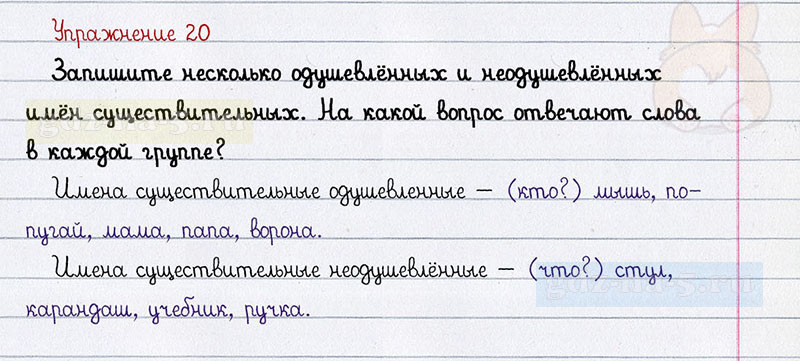 Упражнение 20
Запишите несколько одушевлённых и неодушевлённых
имён существительных. На какой вопрос отвечают слова
в каждой группе?
Имена существительные одушевленные – (кто?) мышь, по-
пугай, мама, папа, ворона.
Имена существительные неодушевлённые – (что?) стул,
карандаш, учебник, ручка.